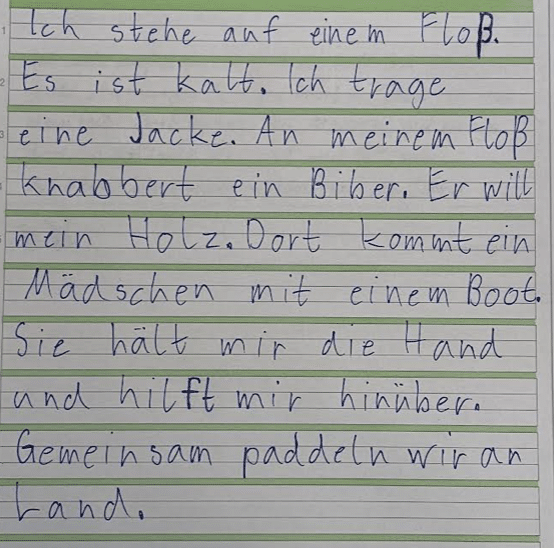 Ich stehe auf einem Floß.
Es ist kalt. Ich trage
eine Jacke. An meinem Floß
knabbert ein Biber. Er will
mein Holz. Dort kommt ein
Mädschen mit einem Boot.
Sie hält mir die Hand
und hilft mir hinüber.
Gemeinsam paddeln wir an
Land.